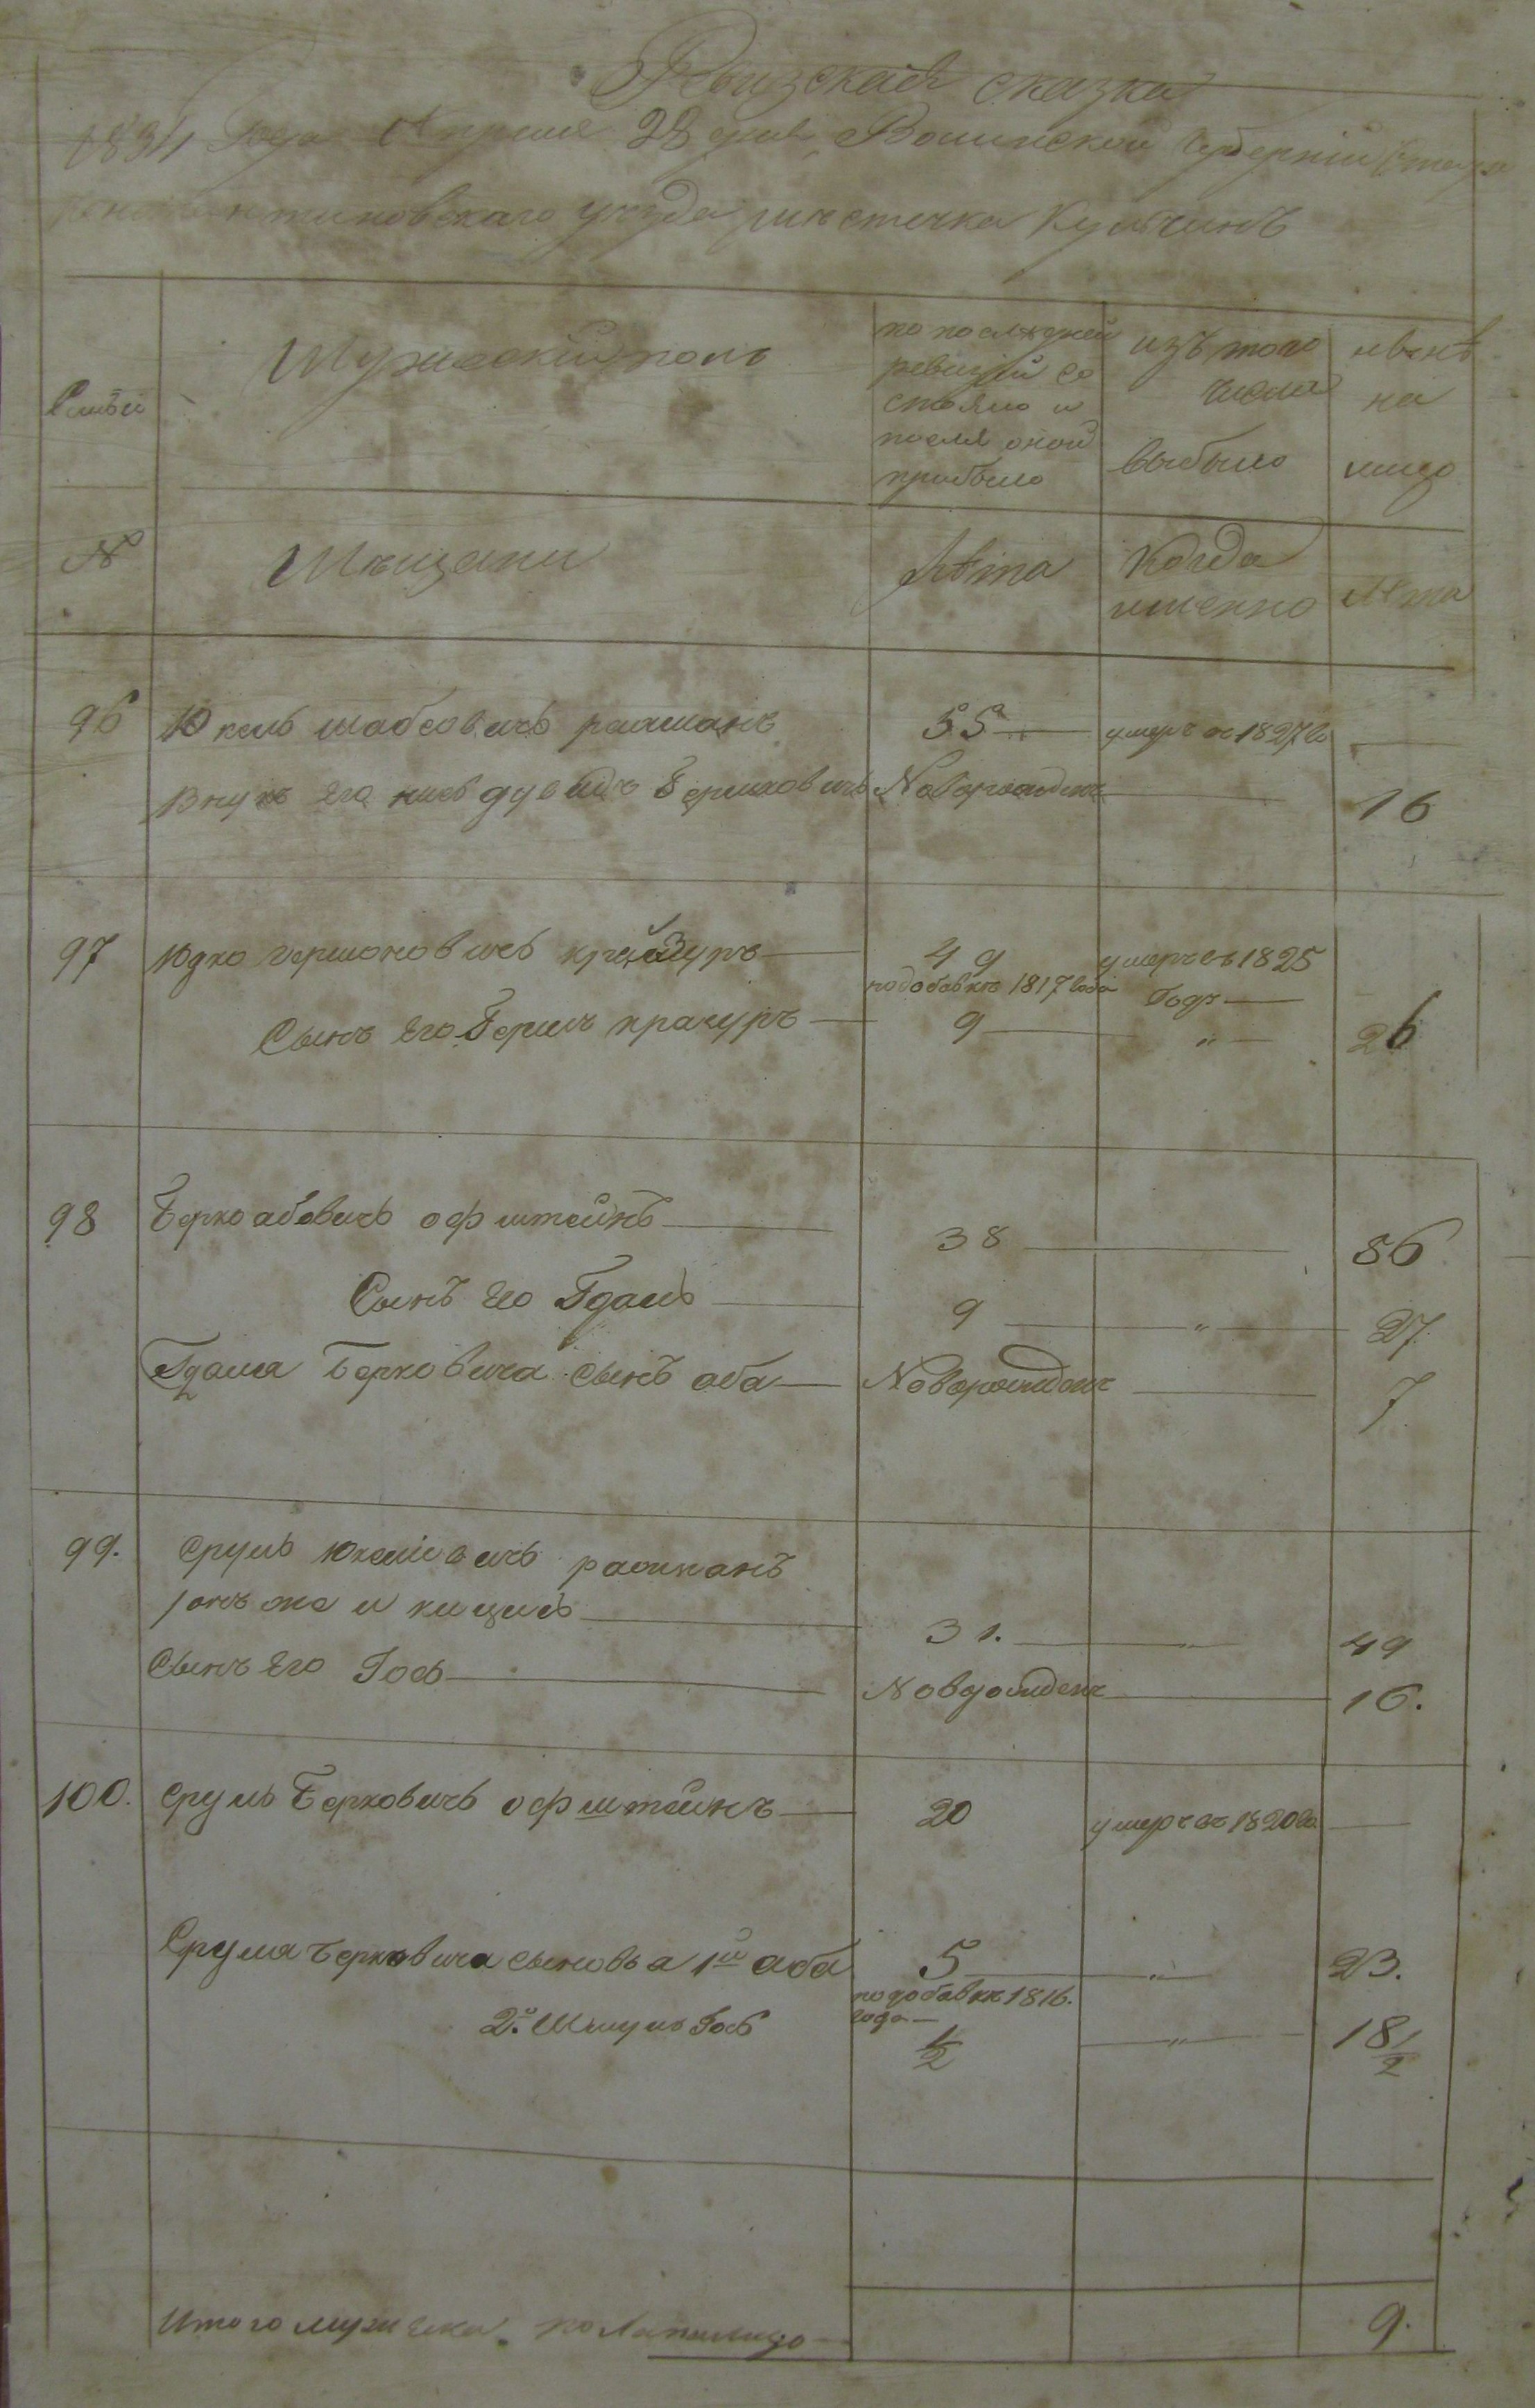 Ревизская сказка
1834 Года Апреля 28 дня Волынской Губернии Старо
константиновского уезда местечка Кульчинъ
Семьи
Мужеский полъ
по последней
ревизии со
стояло и
после оной
прибыло
изъ того
числа
выбыло
ныне
на
лицо
№
Мещани
Лета
Когда
именно
Лета
96 Юкель шабсовичь 55 — умеръ въ 1827 го —
Внукъ Его Берковичь Новорожденъ — 16
97 Юдко гершоновичь 49 умеръ въ 1825
подобавкъ 1817 года Годъ —
Сынъ Его Берль крачуръ — 9 — " — 26
98 Берко абовичь офштейнъ — 38 — 56
Сынъ Его Гдаль — 9 — " — 27
Гдаля Берковича сынъ аба — Новорожденъ — 7
99. Сруль Юкелевичь
онъ же и кицисъ — 31. — " — 49
Сынъ Его Іосъ — Новорожденъ — 16.
100. Сруль Берковичь офштейнъ — 20 умеръ въ 1820 го —
Сруля Берковича сыновья 1й аба 5 — " — 23.
подобавкъ 1816.
года —
2й Шмуль Іосъ ½ — " — 18½
Итого мужеска пола налицо — 9.